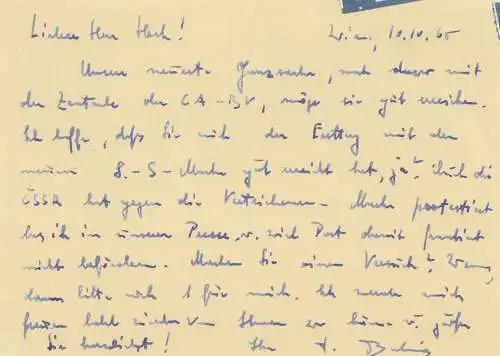 Lieber Herr Hech! Wien, 10.10.65
Unsere neueste Ganzsache, noch dazu mit
der Zentrale der CA-BV, möge sie gut erreichen.
Ich hoffe, daß Sie mich der Eilbrief mit der
neuen S.-S-Marke gut erreicht hat, ja? Auch die
ČSSR hat gegen die Vertriebenen-Marke protestiert
las ich in unserer Presse u. wird Post damit frankiert
nicht befördern. Machen Sie einen Versuch? Wenn,
dann bitte auch 1 für mich. Ich würde mich
freuen bald wieder von Ihnen zu hören u. grüße
Sie herzlichst! Ihr